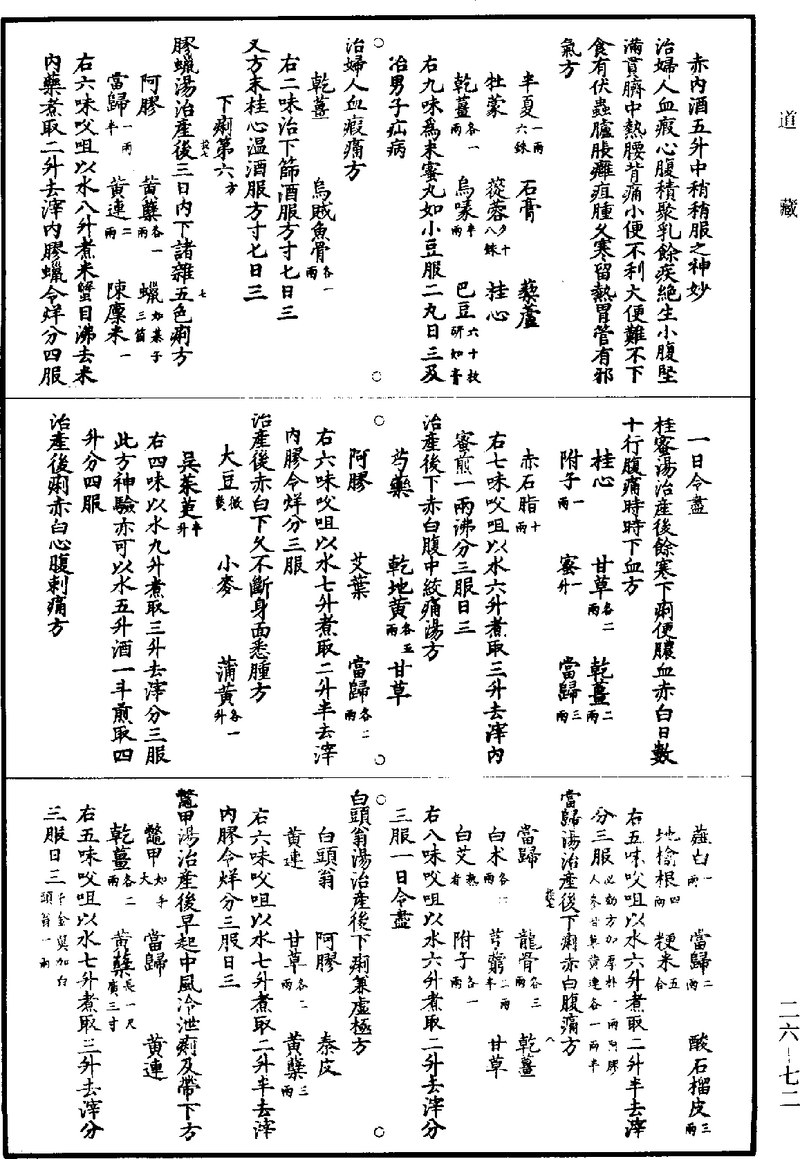 道藏
赤內酒五升中稍稍服之神妙
治婦人血瘕心腹積聚乳餘疾絕生小腹堅
滿貫臍中熱腰背痛小便不利大便難不下
食有伏蟲臚脹癰疽腫久寒留熱胃管有邪
氣方
半夏一兩六銖 石膏 藜蘆
牡蒙 蓯蓉各十八銖 桂心
乾薑各一兩 烏喙半兩 巴豆六十枚研如膏
右九味為末蜜丸如小豆服二丸日三及
治男子疝病
治婦人血瘕痛方
乾薑 烏賊魚骨各一兩
右二味治下篩酒服方寸匕日三
又方末桂心溫酒服方寸匕日三
下痢第六方
膠蠟湯治產後三日內下諸雜五色痢方
阿膠 黃蘗各一兩 蠟如棊子三箇
當歸一兩半 黃連二兩 陳廩米一
右六味㕮咀以水八升煮米蟹目沸去米
內藥煮取二升去滓內膠蠟令烊分四服
一日令盡
桂蜜湯治產後餘寒下痢便膿血赤白日數
十行腹痛時時下血方
桂心 甘草各二兩 乾薑二兩
附子一兩 蜜一升 當歸三兩
赤石脂十兩
右七味㕮咀以水六升煮取三升去滓內
蜜煎一兩沸分三服日三
治產後下赤白腹中絞痛湯方
芍藥 乾地黃各五兩 甘草
阿膠 艾葉 當歸各二兩
右六味㕮咀以水七升煮取二升半去滓
內膠令烊分三服
治產後赤白下久不斷身面悉腫方
大豆微熬 小麥 蒲黃各一升
吳茱萸半升
右四味以水九升煮取三升去滓分三服
此方神驗亦可以水五升酒一斗煎取四
升分四服
治產後痢赤白心腹刺痛方
薤白一兩 當歸二兩 酸石榴皮三兩
地榆根四兩 粳米五合
右五味㕮咀以水六升煮取二升半去滓
分三服必効方加厚朴一兩阿膠人參甘草黃連各一兩半
當歸湯治產後下痢赤白腹痛方
當歸 龍骨各三兩 乾薑
白朮各二兩 芎藭二兩半 甘草
白艾熟者 附子各一兩
右八味㕮咀以水六升煮取二升去滓分
三服一日令盡
白頭翁湯治產後下痢兼虛極方
白頭翁 阿膠 秦皮
黃連 甘草各二兩 黃蘗三兩
右六味㕮咀以水七升煮取二升半去滓
內膠令烊分三服日三
鼈甲湯治產後早起中風冷泄痢及帶下方
鼈甲如手大 當歸 黃連
乾薑各二兩 黃蘗長一尺廣三寸
右五味㕮咀以水七升煮取三升去滓分
三服日三千金翼加白頭翁一兩
二六-七二